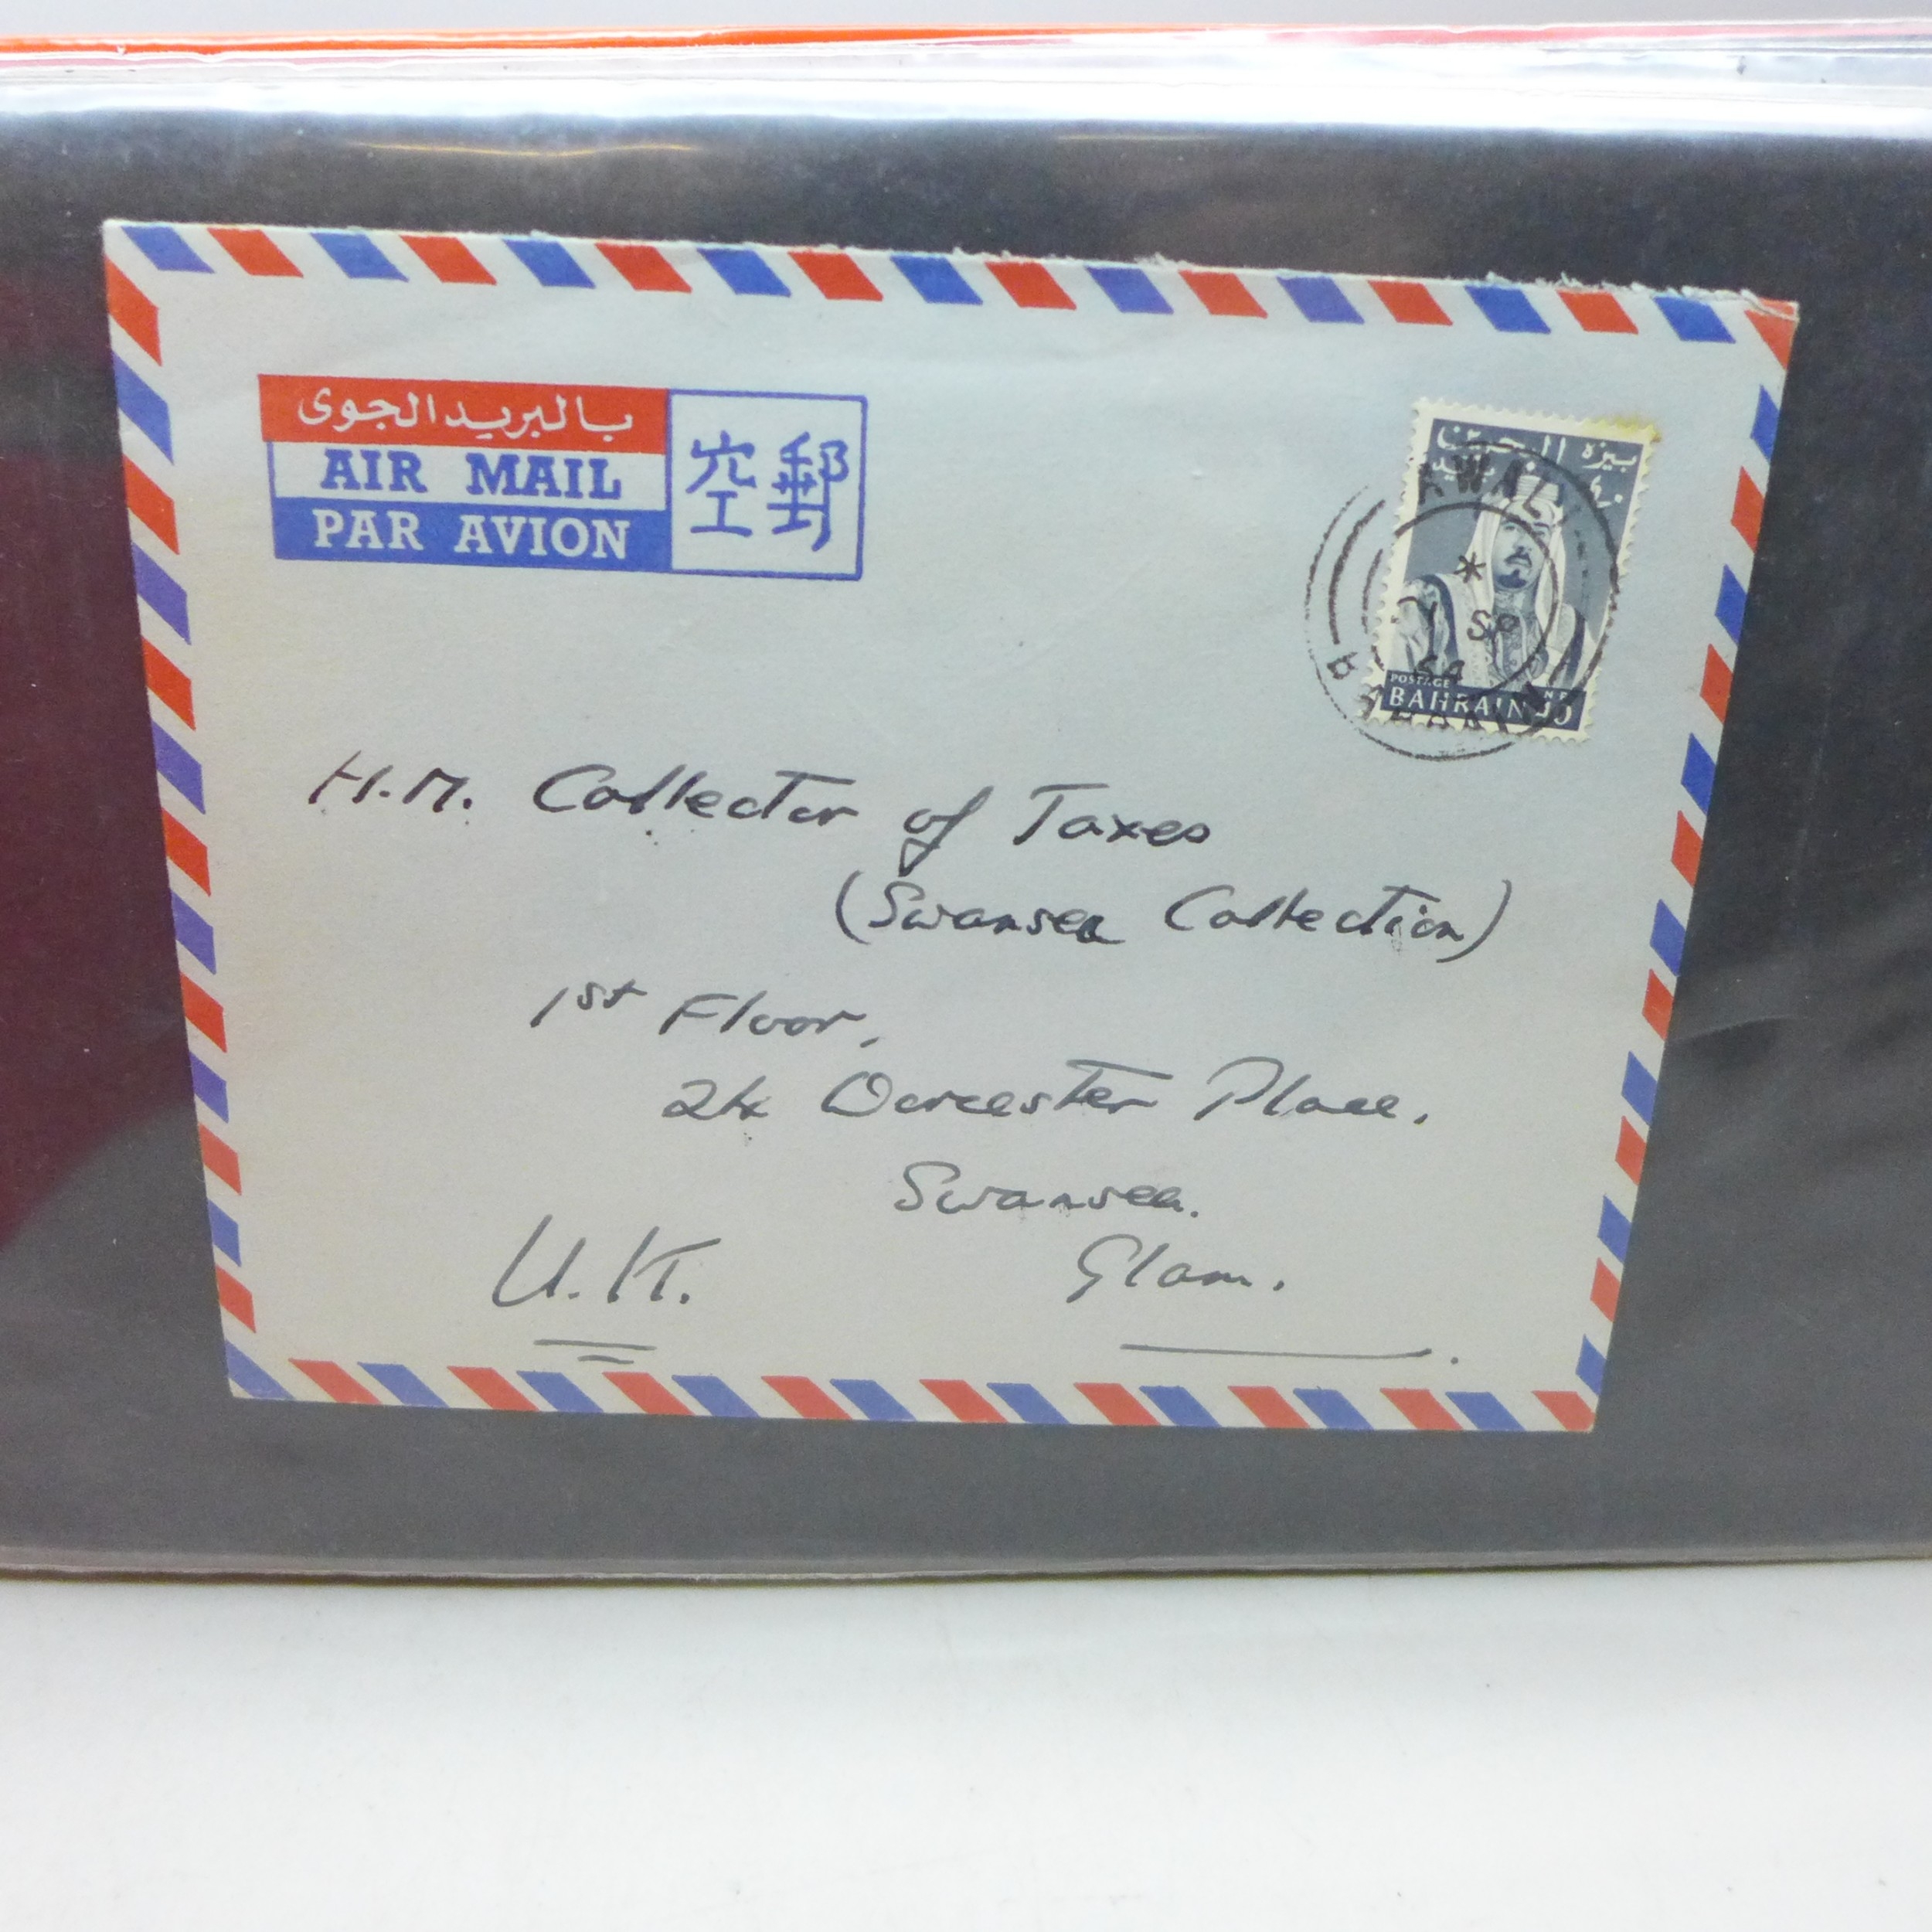 بالبريد الجوى
AIR MAIL
PAR AVION
空郵
بيزة البحرين
٤٠
AWALI
SP
64
POSTAGE
NP
BAHRAIN 40
BAHRAIN
H.M. Collector of Taxes
(Swansea Collection)
1st Floor,
24 Orcester Place.
Swansea.
Glam.
U.K.